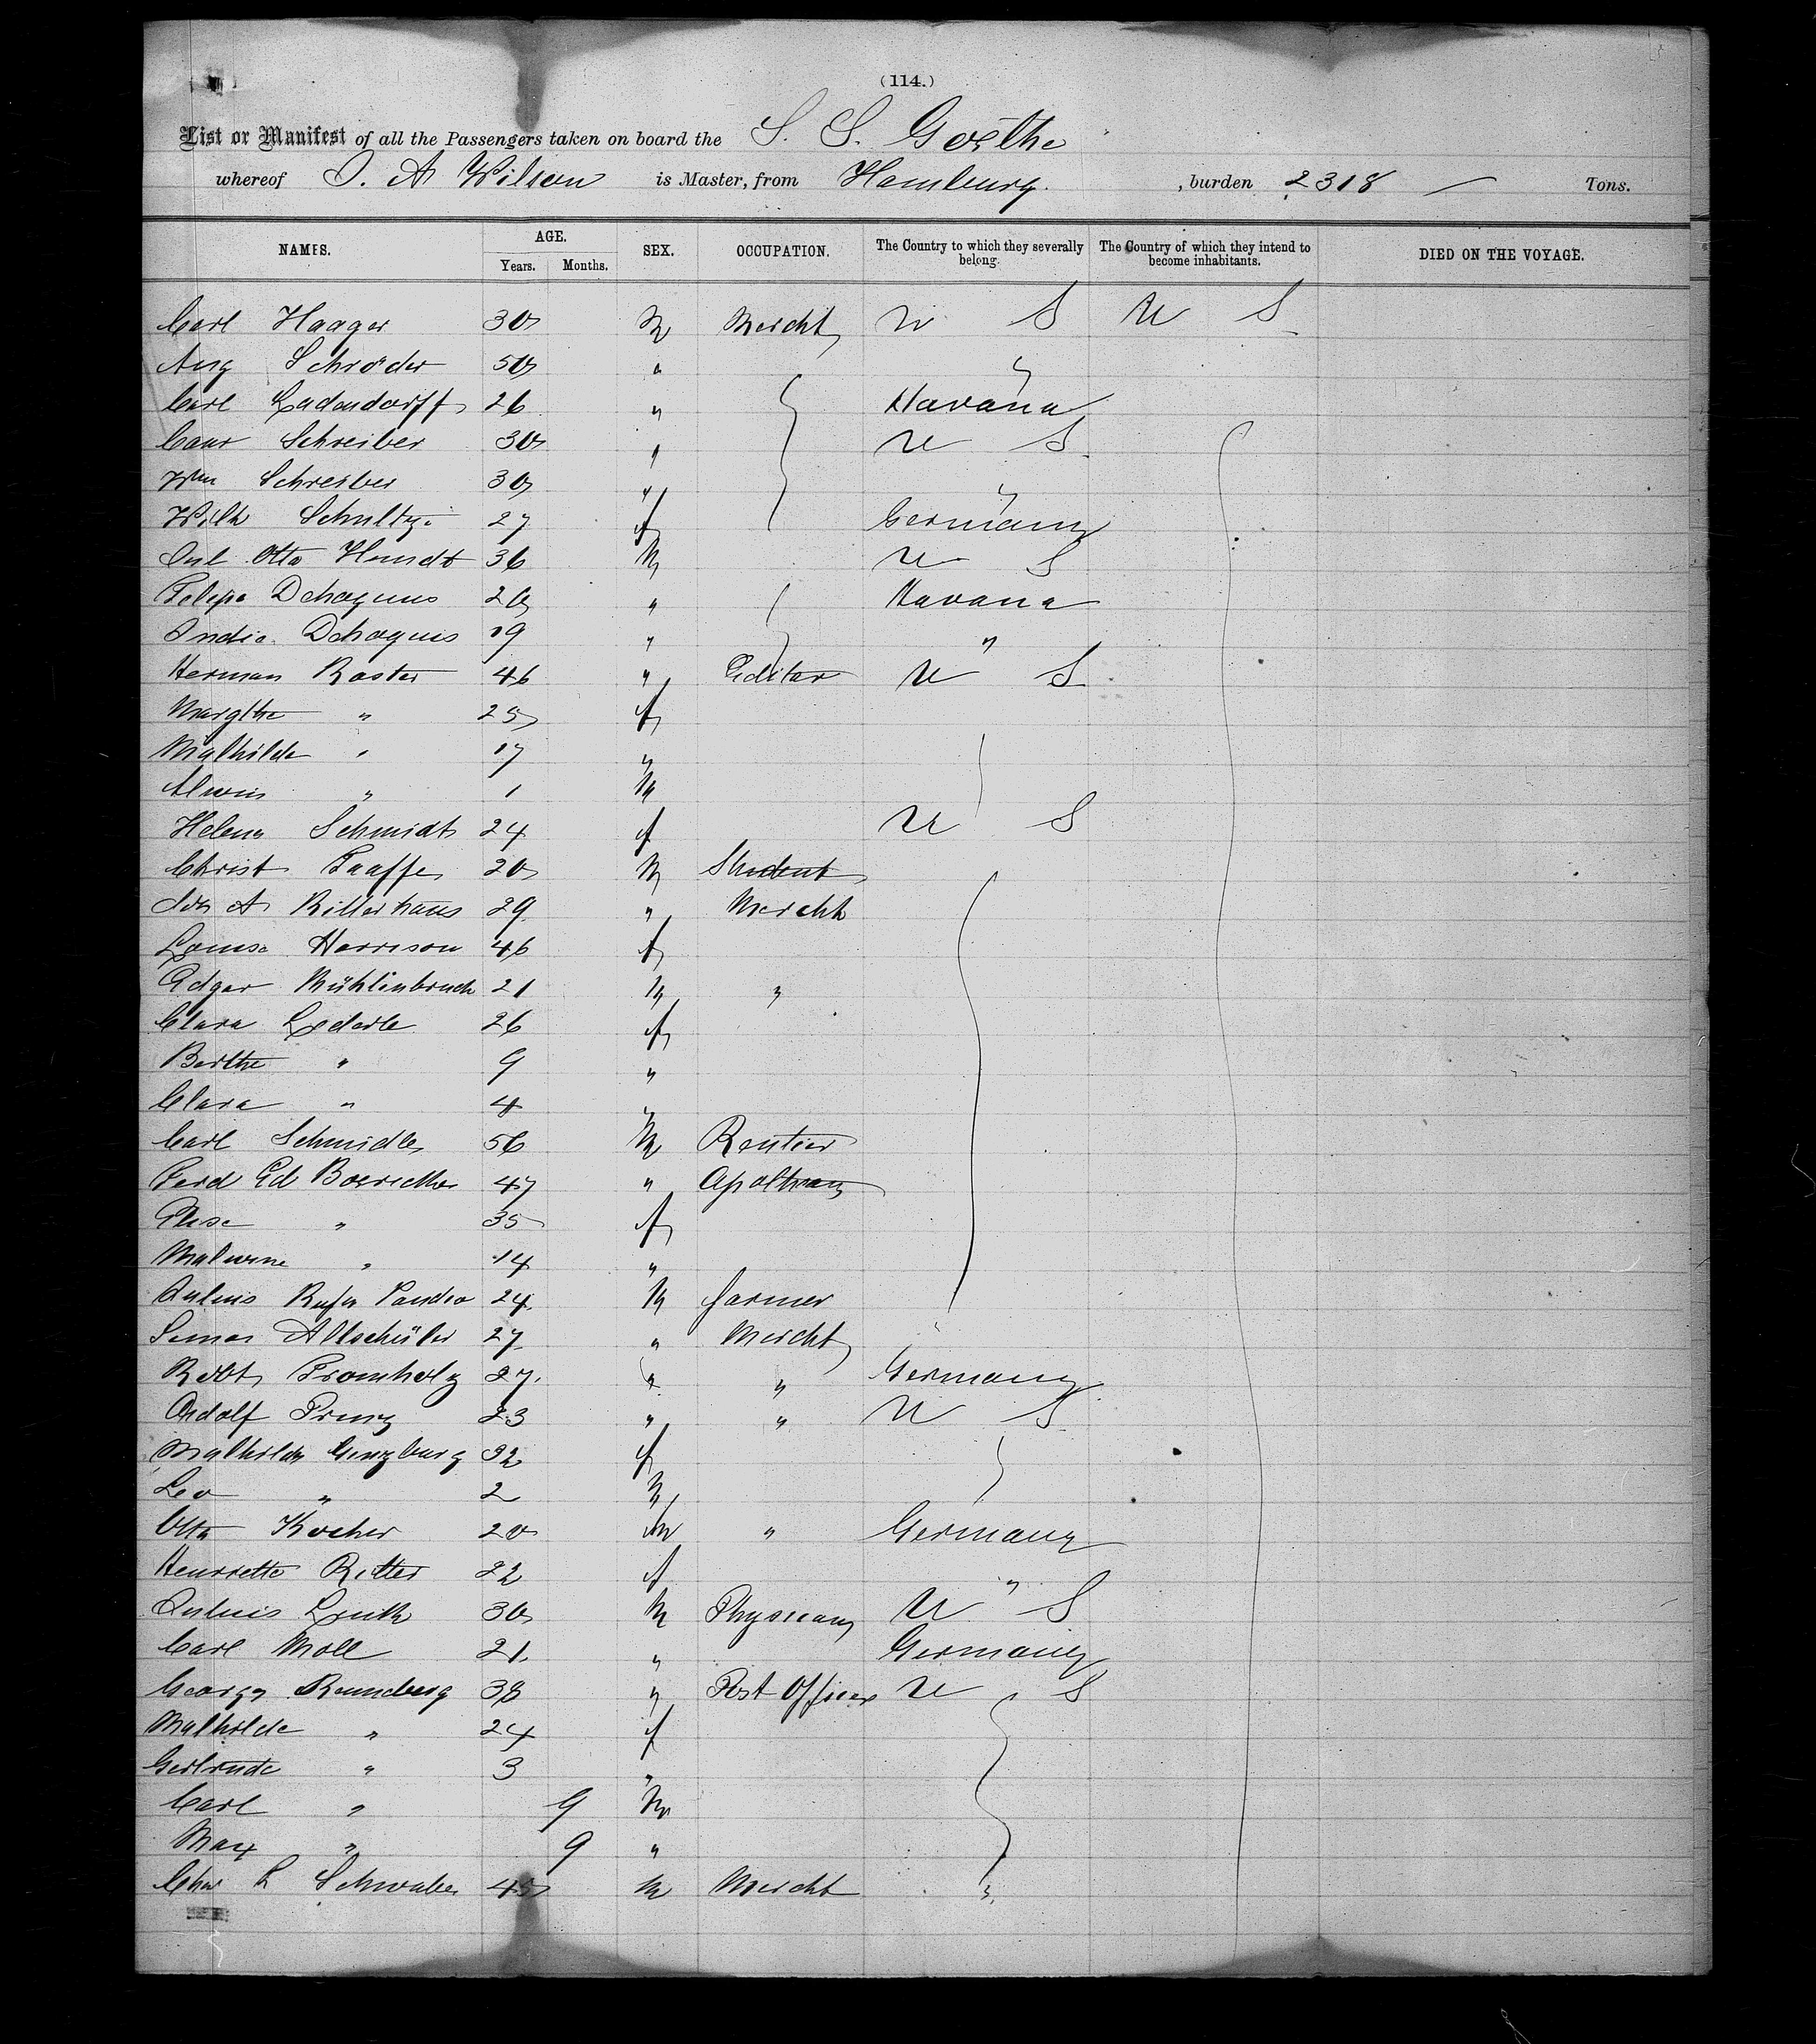 (114.)
List or Manifest of all the Passengers taken on board the S. S. Goethe
whereof J. A Wilson is Master, from Hamburg. , burden 2318 — Tons.
NAMES. AGE. Years. Months. SEX. OCCUPATION. The Country to which they severally belong. The Country of which they intend to become inhabitants. DIED ON THE VOYAGE.
Carl Haager 30 M Mercht U S U S
Aug Schröder 50 "
Carl Ladendorff 26 " Havana
Schreiber 30 " U S
Wm Schreiber 30 " "
Wilh Schultze 27 f Germany
Jul. Otto 36 M U S
20 " Havana
19 " "
Herman Raster 46 " Editor U S
Margthe " 25 f
Mathilde " 17 "
Alwin " 1 M
Helena Schmidt 24 f U S
Christ 20 M Student
A Ritterhaus 29 " Mercht
Louise Harrison 46 f
Edgar Mühlenbruch 21 M "
Clara Lederle 26 f
Berthe " 9 "
Clara " 4 "
Carl Schmidle 56 M Rentier
Ferd Ed Boericke 47 " Apothecary
Elise " 35 f
Malwine " 14 "
Julius 24 M farmer
Altschüler 27 " Mercht
Robt Fromholz 27 " " Germany
Adolf Prinz 23 " " U S
Mathilde Ginzburg 32 f
Leo " 2 M
Otto Kocher 20 M " Germany
Henriette Ritter 22 f "
Julius 30 M Physician U S
Carl Moll 21 " Germany
George 38 " Post Officer U S
Mathilde " 24 f
Gertrude " 3 "
Carl " 9 M
Max " 9 "
Schwabe 45 M Mercht "